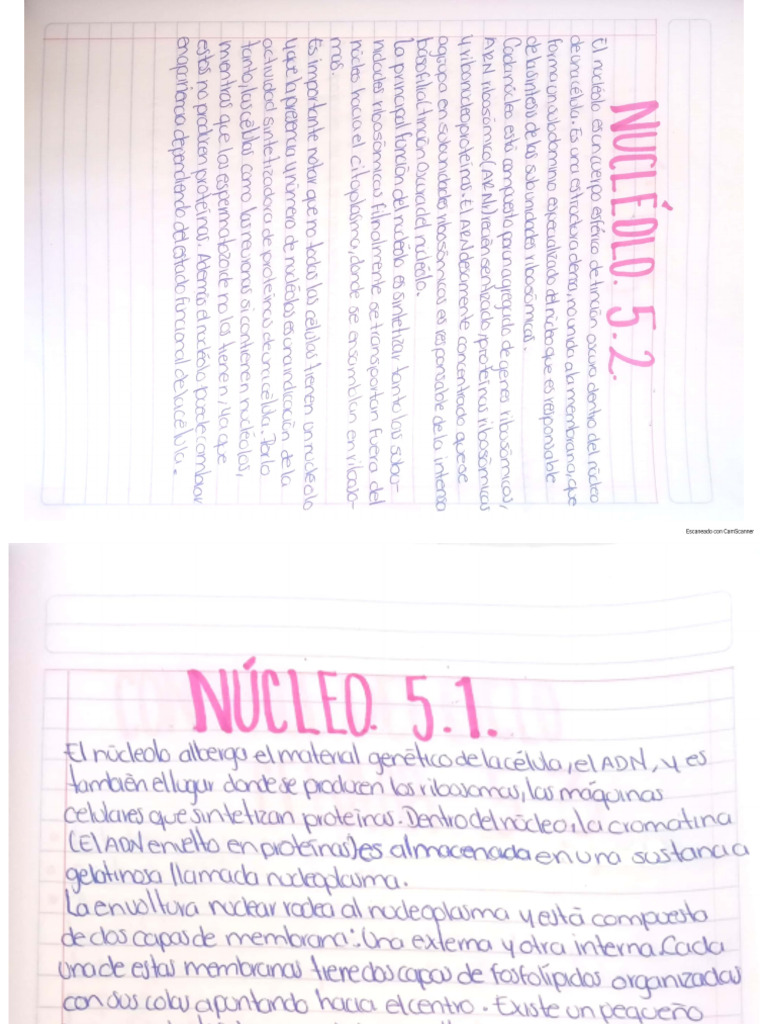 NUCLÉOLO. 5.2.
El nucléolo es un cuerpo esférico de tinción oscura dentro del núcleo
de una célula. Es una estructura densa, no unida a la membrana, que
forma un subdominio especializado del núcleo que es responsable
de la síntesis de las subunidades ribosómicas.
Cada núcleo está compuesto por un agregado de genes ribosómicos,
ARN ribosómico (ARN) recién sentizado, proteínas ribosómicas
y ribonucleoproteínas. El ARN densamente concentrado que se
agrupa en subunidades ribosómicas es responsable de la intensa
basofilia (tinción oscura del nucléolo.
La principal función del nucléolo es sintetizar tanto las subu-
nidades ribosómicas finalmente se transportan fuera del
núcleo hacia el citoplasma, donde se ensamblan en riboso-
mas.
Es importante notar que no todas las células tienen un nucleolo
y que la presencia y número de nucléolos es una indicación de la
actividad sintetizadora de proteínas de una célula. Por lo
tanto, las células como las neuronas si contienen nucléolos,
mientras que los espermatozoide no los tienen, ya que
estos no producen proteínas. Además el nucléolo puede cambiar
en
dependiendo del estado funcional de la célula.
Escaneado con CamScanner
NÚCLEO. 5.1.
El núcleolo alberga el material genético de la célula, el ADN, y es
también el lugar donde se producen los ribosomas, las máquinas
celulares que sintetizan proteínas. Dentro del núcleo, la cromatina
(El ADN envuelto en proteínas) es almacenada en una sustancia
gelatinosa llamada nucleoplasma.
La envoltura nuclear rodea al nucleoplasma y está compuesta
de dos capas de membrana: Una externa y otra interna. Cada
una de estas membranas tiene dos capas de fosfolípidos organizadas
con sus colas apuntando hacia el centro. Existe un pequeño